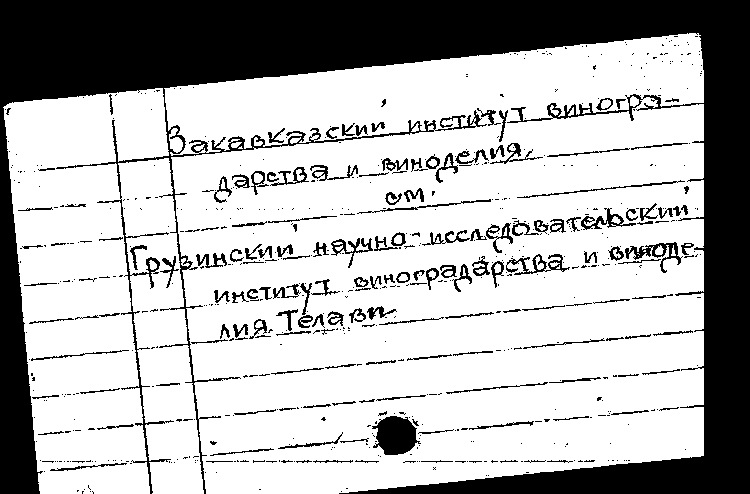 Закавказский институт виногра-
дарства и виноделия.
см.
Грузинский научно-исследовательский
институт виноградарства и виноде-
лия. Телави